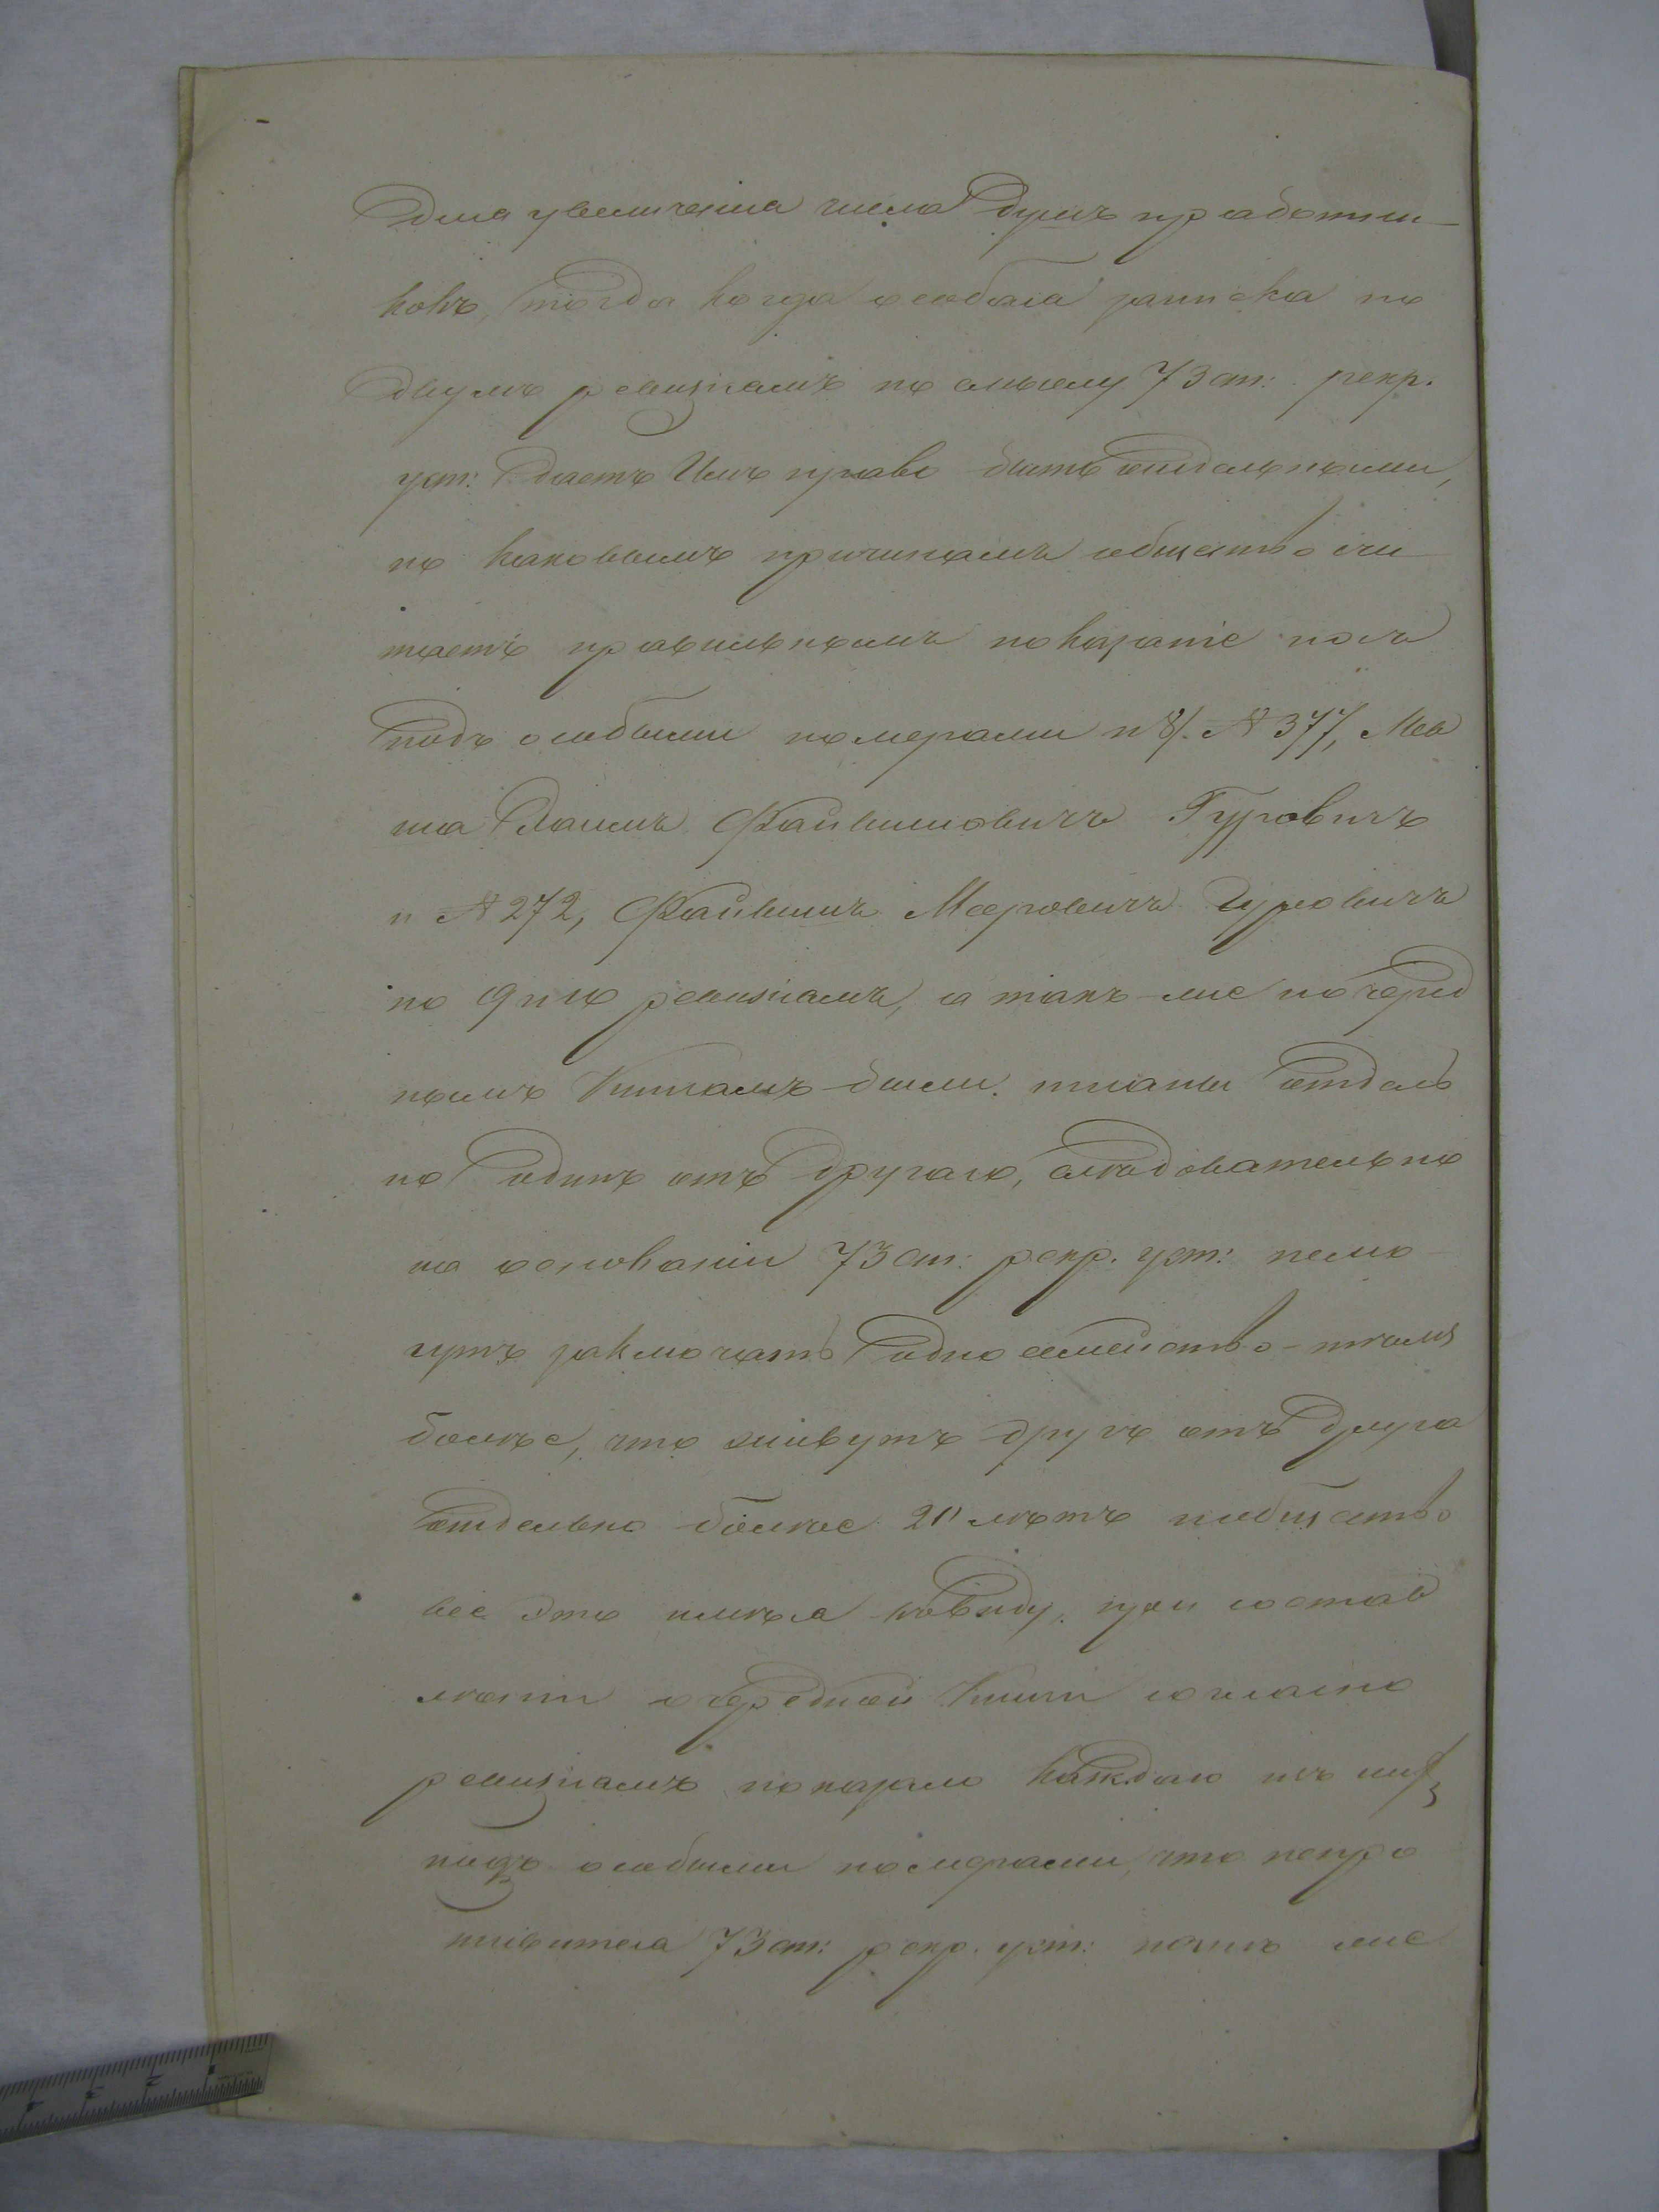 для увеличенія числа душъ и работни-
ковъ, тогда когда особая записка по
двумъ ревизіямъ по смыслу 73 ст: рекр.
уст: даетъ Имъ право быть отдѣльными,
по каковымъ причинамъ общество счи-
таетъ правильнымъ показаніе ихъ
подъ особыми номерами № 377, Мов
ша Хаимъ Файвишовичъ Гуровичъ
и № 272, Файвишъ Мееровичъ Гуровичъ
по 9 и 10 ревизіямъ, а также по черед
нымъ Книгамъ были писаны отдѣль
но одинъ отъ другаго, слѣдовательно
на основаніи 73 ст: рекр. уст: немо-
гутъ заключать одно семейство - тѣмъ
болѣе, что живутъ другъ отъ друга
отдѣльно болѣе 20 лѣтъ и общество
все это имѣя ввиду, при состав
леніи очередной Книги согласно
ревизіямъ показало каждаго изъ нихъ
подъ особыми номерами, что непро
тивится 73 ст: рекр. уст: почему же